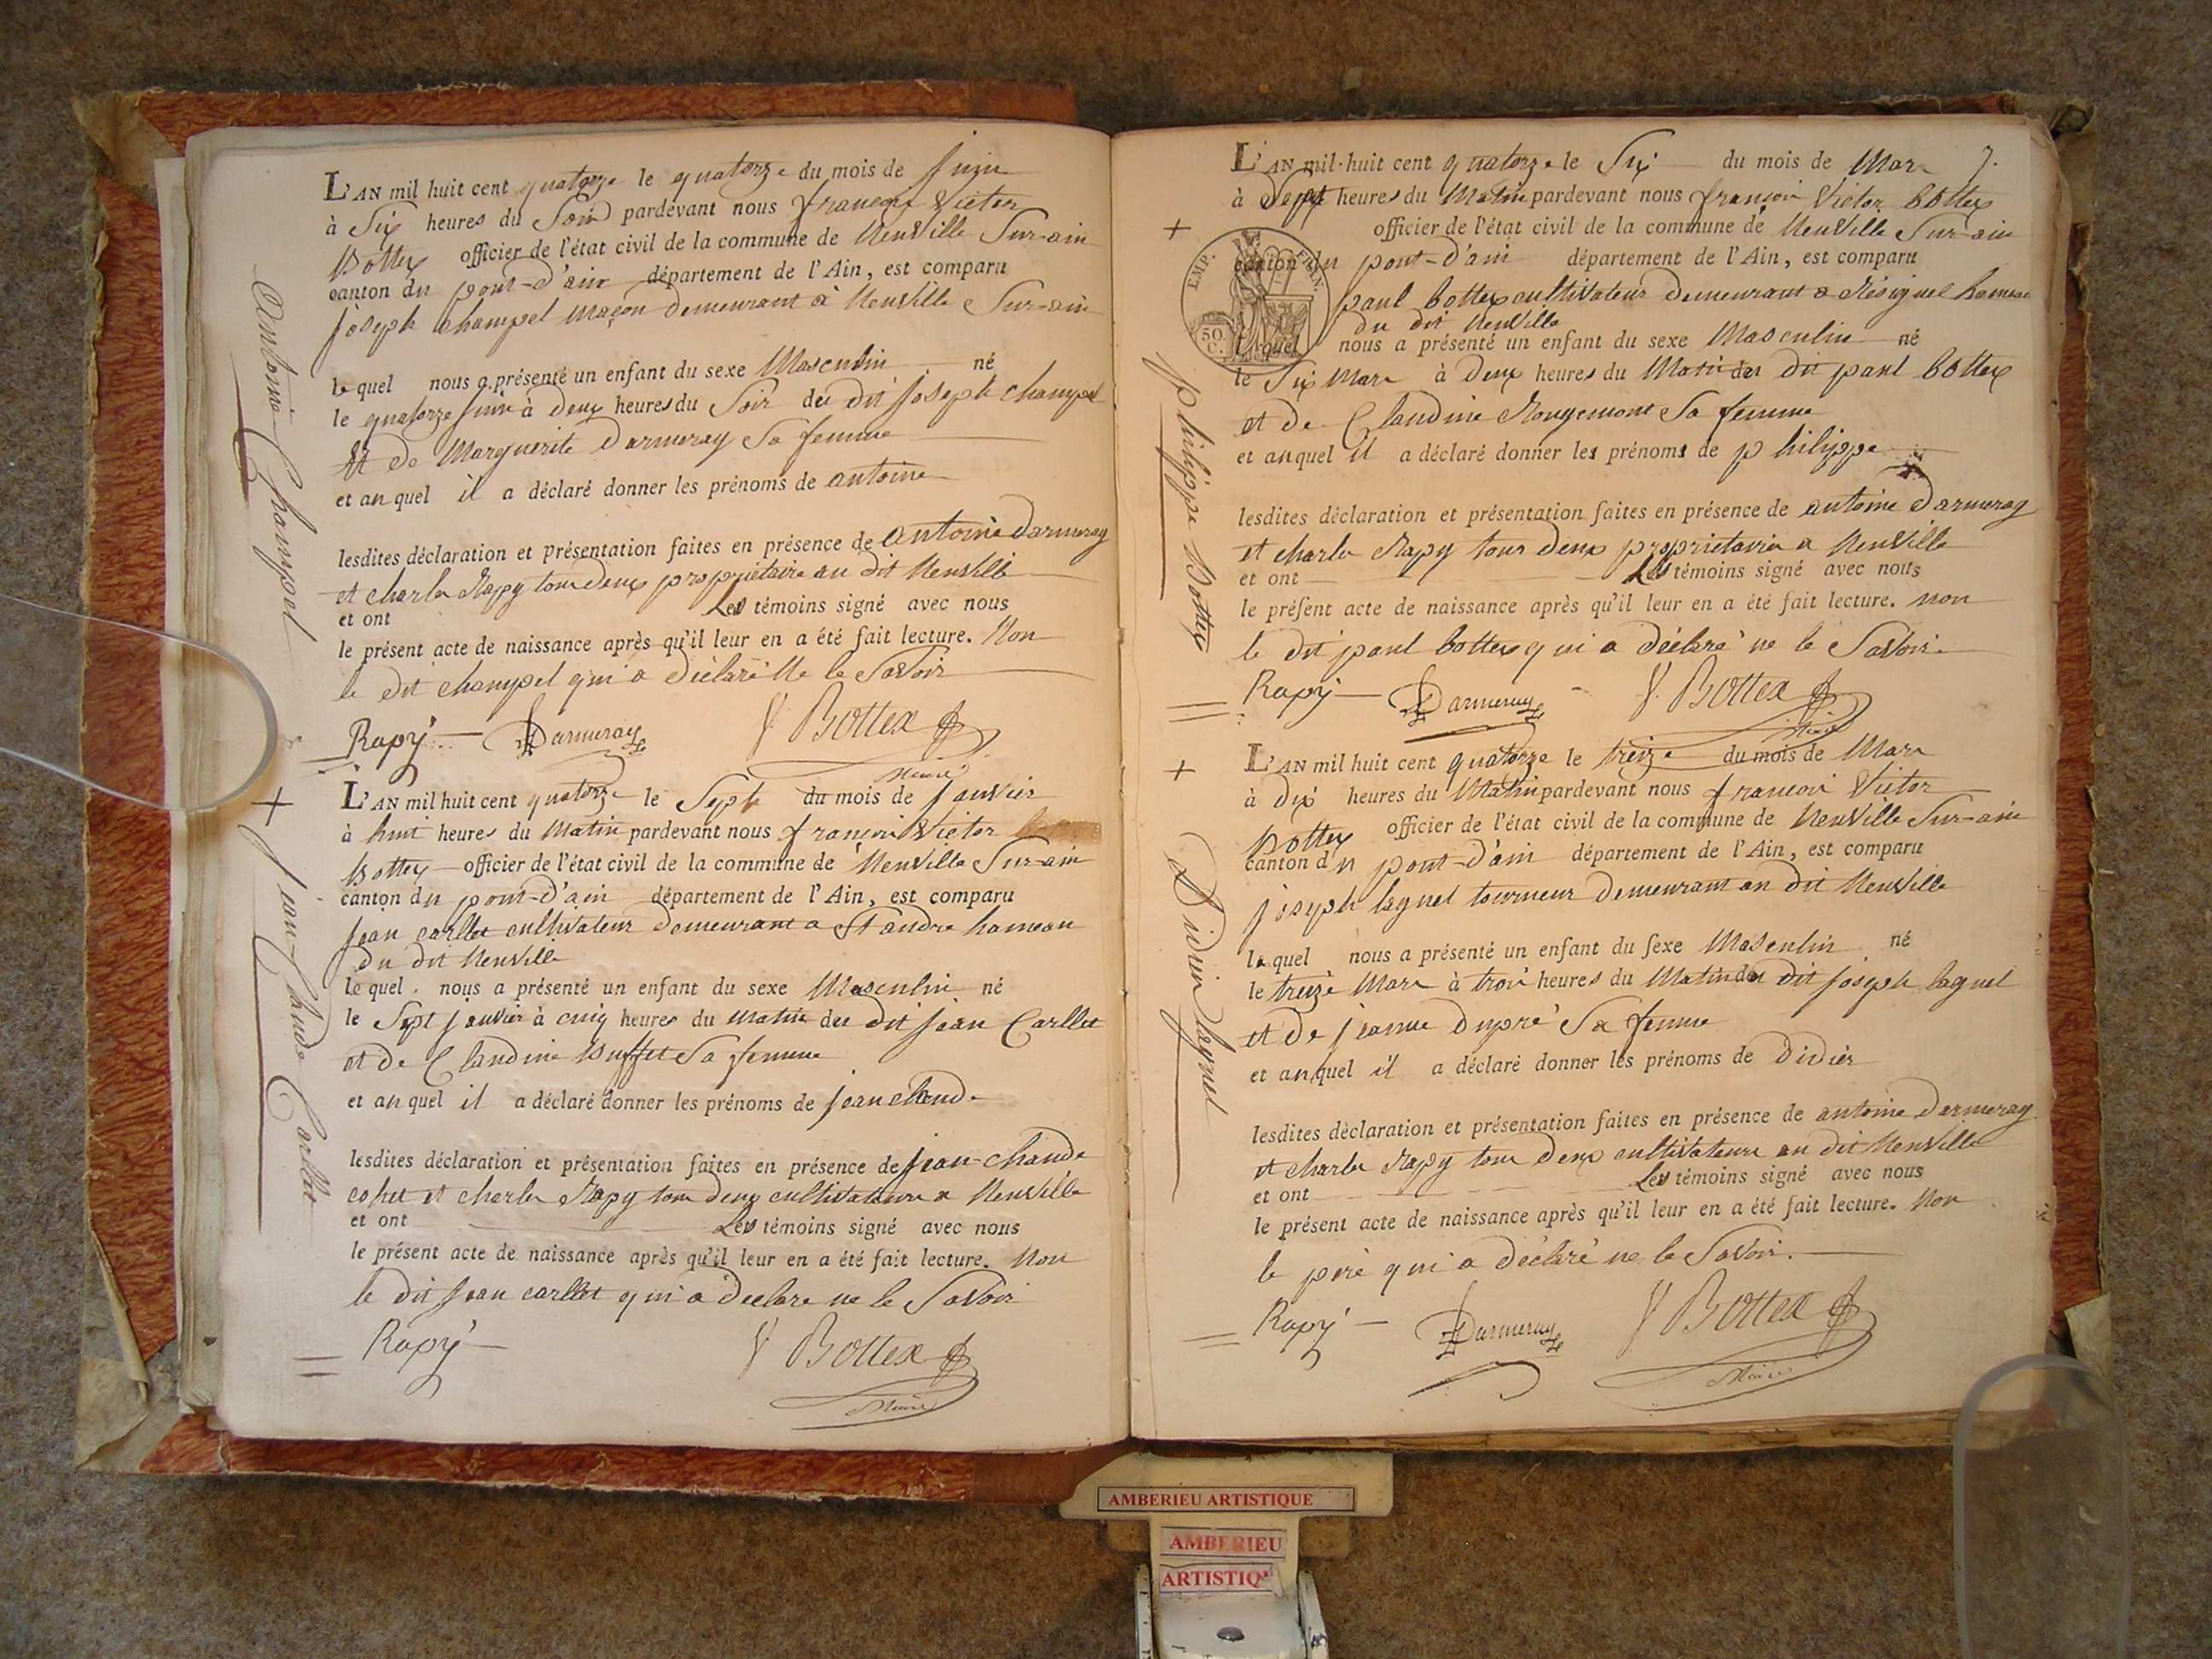 L'AN mil huit cent quatorze le quatorze du mois de juin
à Six heures du Soir pardevant nous françois Victor
Bottex officier de l'état civil de la commune de Neuville Sur-ain
canton du pont-d'ain département de l'Ain, est comparu
joseph champel maçon demeurant à Neuville Sur-ain
le quel nous a présenté un enfant du sexe Masculin né
le quatorze juin à deux heures du Soir du dit joseph champel
et de Marguerite Darmeray Sa femme
et au quel il a déclaré donner les prénoms de antoine
lesdites déclaration et présentation faites en présence de antoine Darmeray
et charle Rapy tous deux propriétaire au dit Neuville
et ont Les témoins signé avec nous
le présent acte de naissance après qu'il leur en a été fait lecture. Non
le dit champel qui a déclaré Ne le Savoir
Rapy Darmeray V. Bottex
Maire
Antoine Champel
L'AN mil huit cent quatorze le Sept du mois de janvier
à huit heures du Matin pardevant nous françois Victor
Bottex officier de l'état civil de la commune de Neuville Sur-ain
canton du pont-d'ain département de l'Ain, est comparu
jean carllet cultivateur demeurant a St andré hameau
du dit Neuville
le quel nous a présenté un enfant du sexe Masculin né
le Sept janvier à cinq heures du matin du dit jean Carllet
et de Claudine Buffet Sa femme
et au quel il a déclaré donner les prénoms de jean claude
lesdites déclaration et présentation faites en présence de jean-claude
et charle Rapy tous deux cultivateurs a Neuville
et ont Les témoins signé avec nous
le présent acte de naissance après qu'il leur en a été fait lecture. Non
le dit jean carllet qui a déclaré ne le Savoir
Rapy V. Bottex
Maire
jean-Claude Carllet
L'AN mil huit cent quatorze le Six du mois de Mars 7.
à Sept heures du Matin pardevant nous françois Victor bottex
officier de l'état civil de la commune de Neuville Sur-ain
canton du pont-d'ain département de l'Ain, est comparu
paul bottex cultivateur demeurant a Résignel hameau
du dit Neuville
le quel nous a présenté un enfant du sexe Masculin né
le Six Mars à deux heures du Matin du dit paul bottex
et de Claudine Rougemont Sa femme
et au quel il a déclaré donner les prénoms de philippe
lesdites déclaration et présentation faites en présence de antoine Darmeray
et charle Rapy tous deux propriétaires a Neuville
et ont Les témoins signé avec nous
le présent acte de naissance après qu'il leur en a été fait lecture. non
le dit paul bottex qui a déclaré ne le Savoir.
Rapy Darmeray V. Bottex
Maire
EMP. FRAN.
50 C.
philippe Bottex
L'AN mil huit cent quatorze le treize du mois de Mars
à dix heures du Matin pardevant nous françois Victor
Bottex officier de l'état civil de la commune de Neuville Sur-ain
canton du pont-d'ain département de l'Ain, est comparu
joseph lagnel tourneur demeurant au dit Neuville
le quel nous a présenté un enfant du sexe Masculin né
le treize Mars à trois heures du Matin du dit joseph lagnel
et de jeanne dupré Sa femme
et au quel il a déclaré donner les prénoms de Didier
lesdites déclaration et présentation faites en présence de antoine Darmeray
et charle Rapy tous deux cultivateurs au dit Neuville
et ont Les témoins signé avec nous
le présent acte de naissance après qu'il leur en a été fait lecture. Non
le père qui a déclaré ne le Savoir.
Rapy Darmeray V. Bottex
Maire
lagnel
AMBERIEU ARTISTIQUE
AMBERIEU
ARTISTIQ